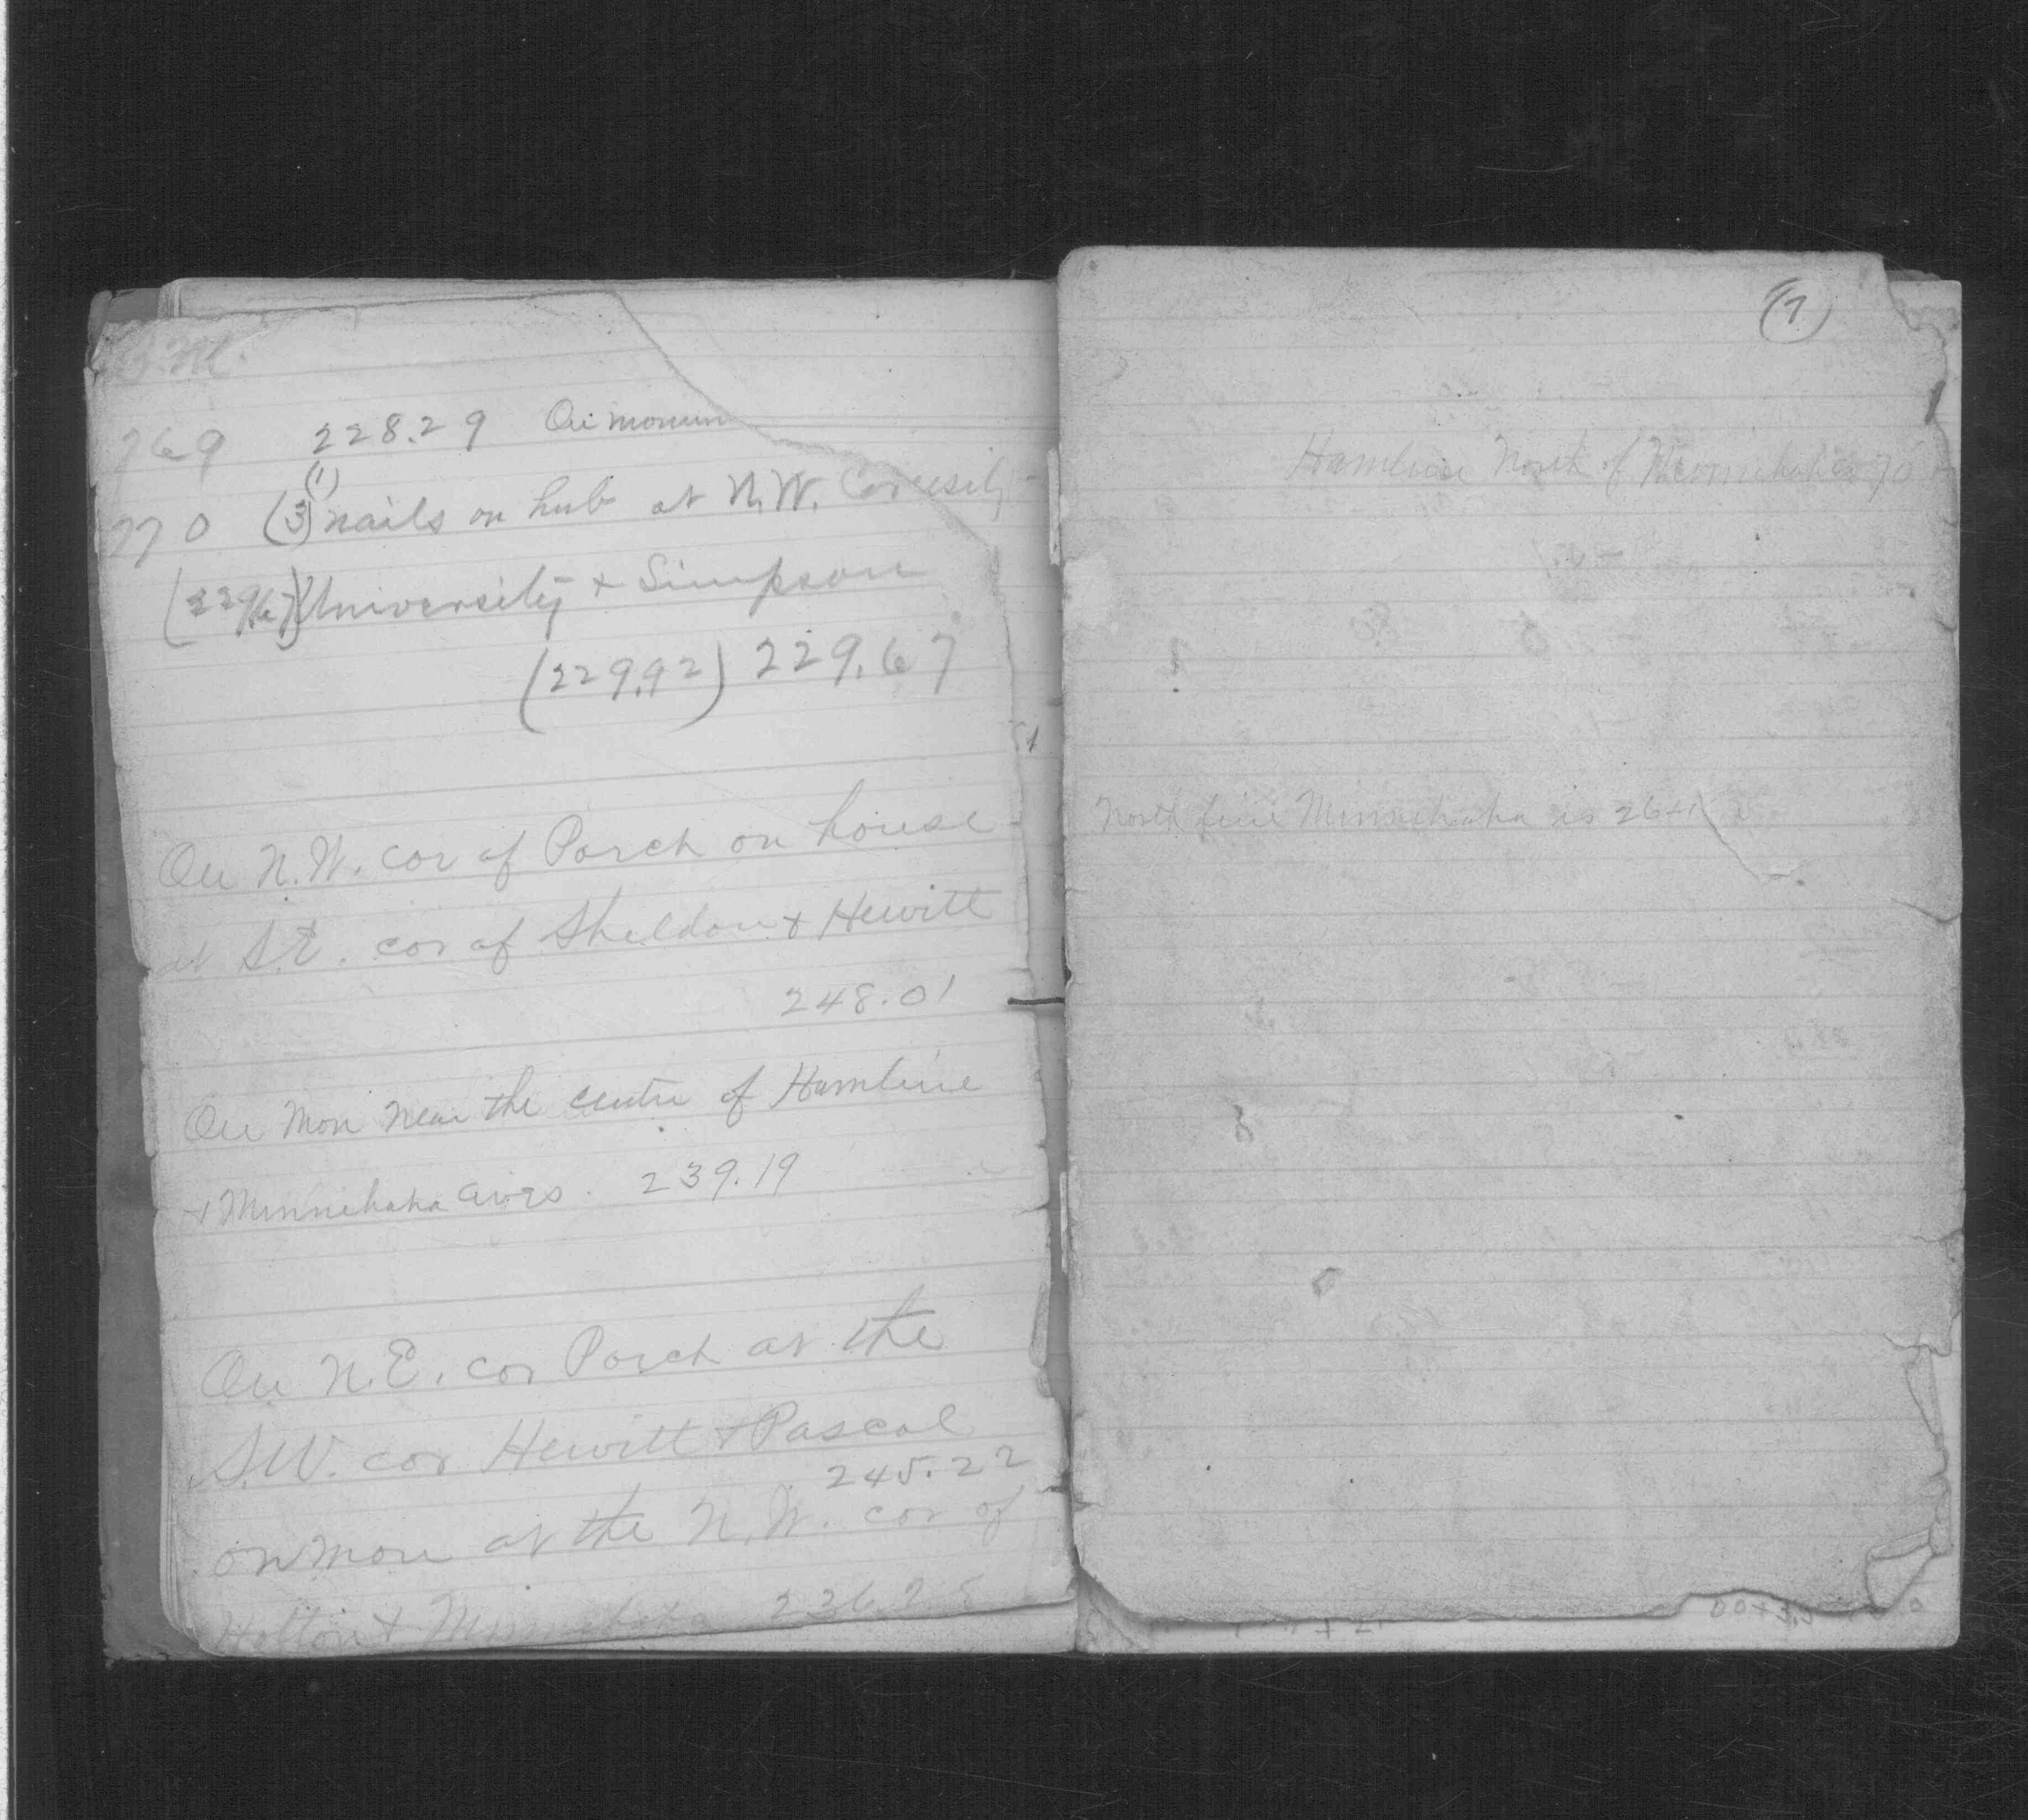 B.M.
769 228.29 On monum
(1)
770 (3) nails on hub at N.W. Cor
(229.67) University + Simpson
(229.92) 229.67
On N.W. cor of Porch on house
at S.E. cor of Sheldon + Hewitt
248.01
On Mon near the centre of Hamline
+ Minnehaha aves. 239.19
On N.E. cor Porch at the
S.W. cor Hewitt + Pascal
245.22
on mon at the N.W. cor of
Holton + Minnehaha 236.28
(7)
Hamline North of Minnehaha 70
North line Minnehaha is 26+